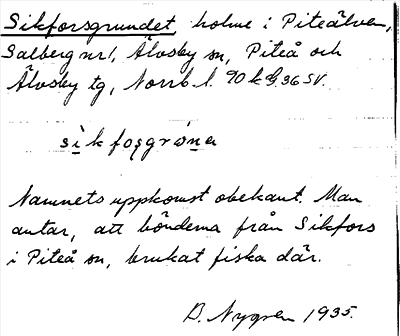 Sikforsgrundet, holme i Piteälven,
Salberg nr 1, Älvsby sn, Piteå och
Älvsby tg, Norrb. l. 90 k G. 36 SV.
Namnets uppkomst obekant. Man
antar, att bönderna från Sikfors
i Piteå sn, brukat fiska där.
D. Nygren 1935.